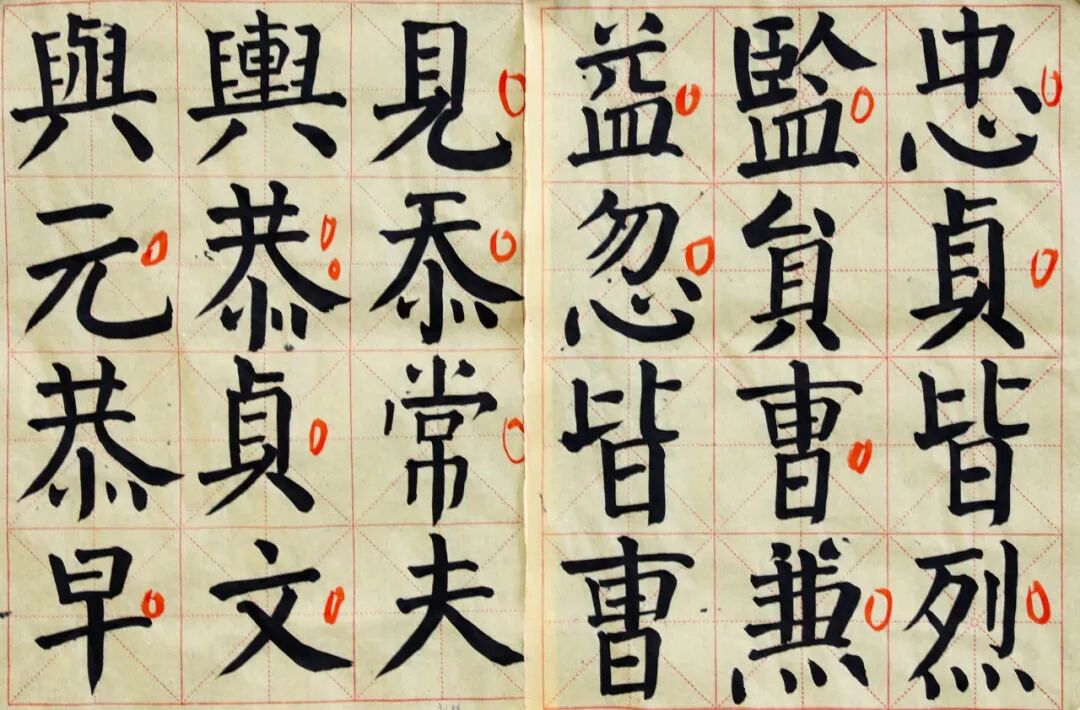 忠貞皆烈
監貟曺兼
益忽皆曺
見忝常夫
輿恭貞文
與元恭早